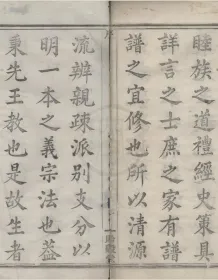 睦族之道禮經史策具
詳言之士庶之家有譜
譜之宜修也所以清源
流辨親疎派別支分以
明一本之義宗法也蓋
秉先王教也是故生者